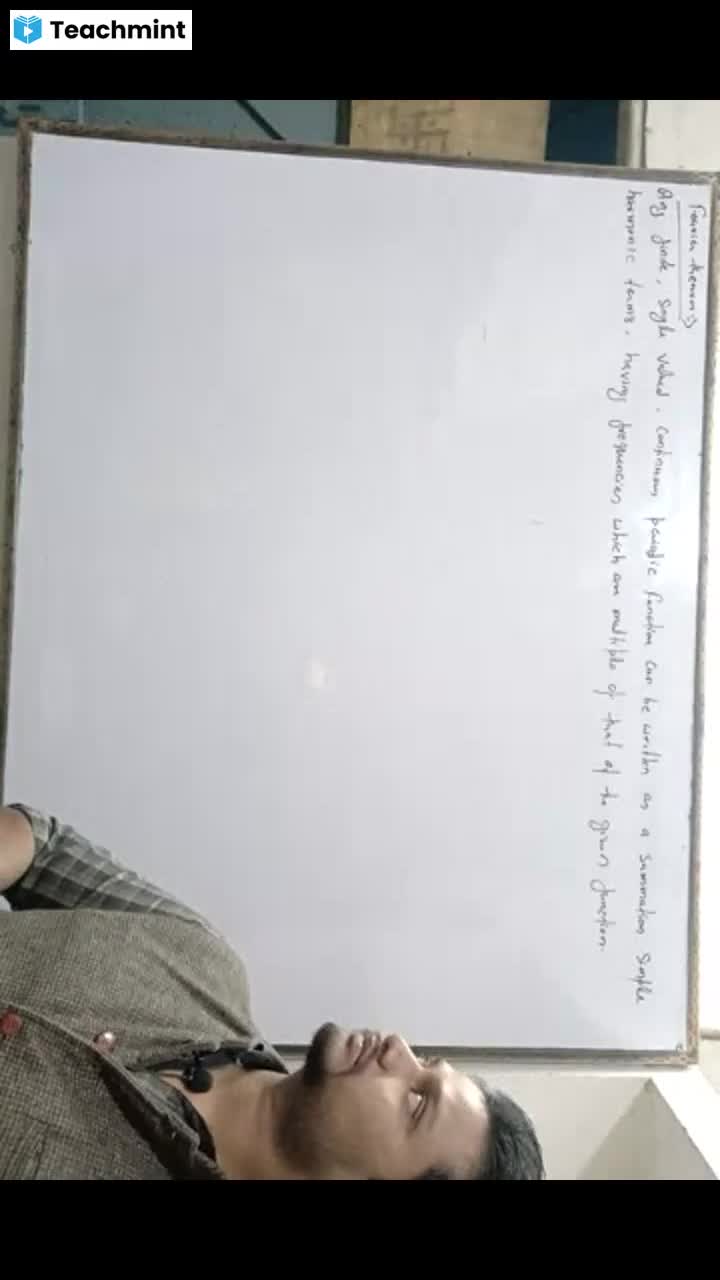 Teachmint
Fourier theorem :→
Any finite, single valued, continuous periodic function can be written as a summation simple
harmonic terms, having frequencies which are multiple of that of the given function.